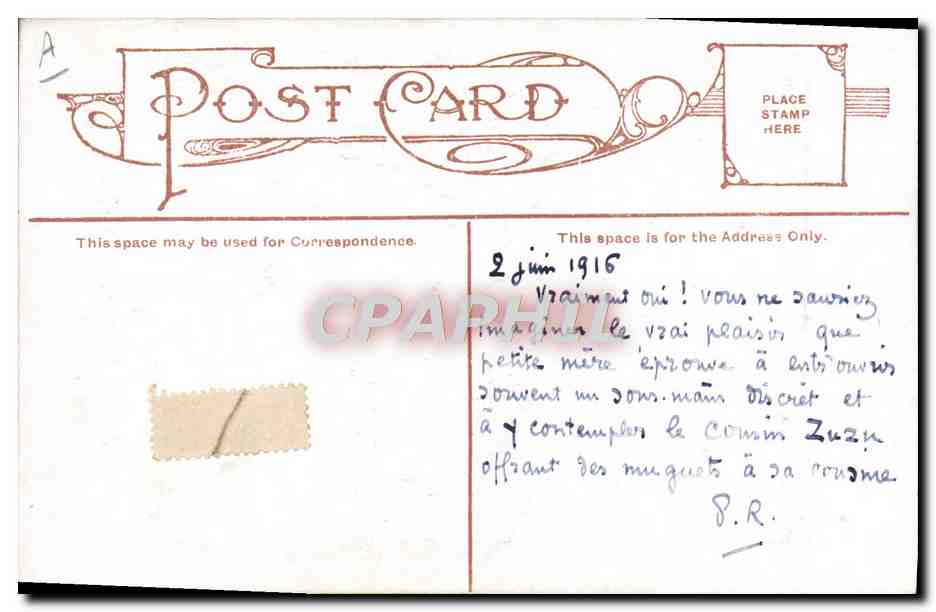 A
POST CARD
PLACE
STAMP
HERE
This space may be used for Correspondence.
This space is for the Address Only.
2 juin 1916
Vraiment oui ! vous ne sauriez
imaginer le vrai plaisir que
petite mère éprouve à entr'ouvrir
souvent un sous-main discret et
à y contempler le cousin Zuzu
offrant des muguets à sa cousine
P. R.
CPARHIL